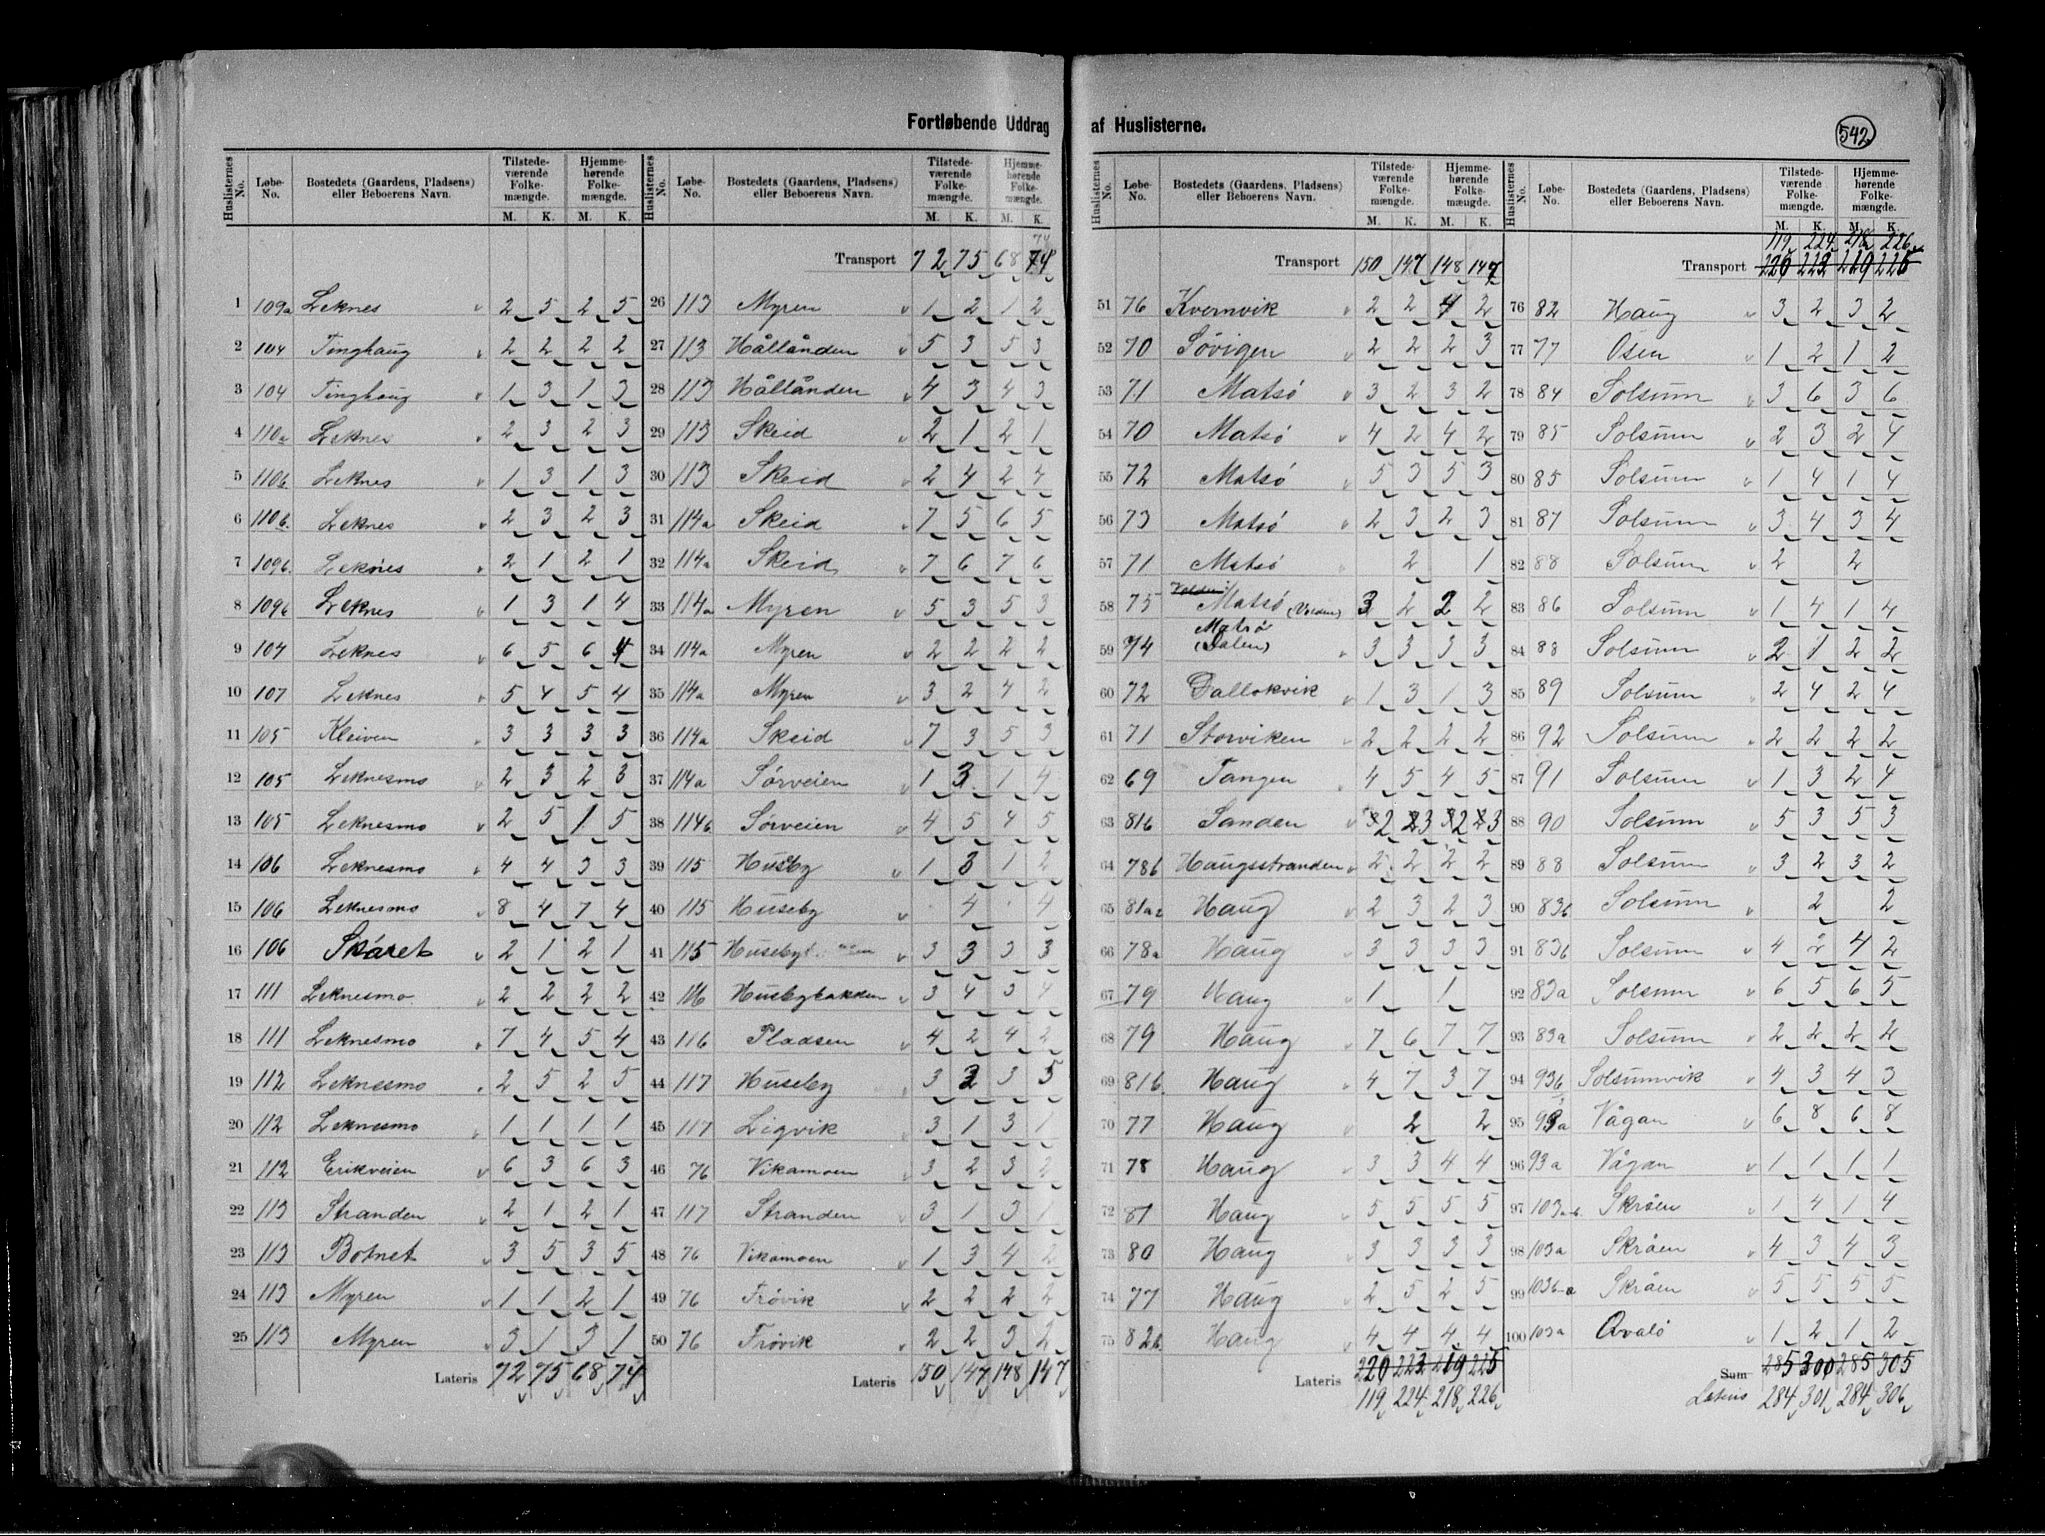 Fortløbende Uddrag af Huslisterne.
542
Huslisternes No. | Løbe-No. | Bostedets (Gaardens, Pladsens) eller Beboerens Navn. | Tilstedeværende Folkemængde. M. K. | Hjemmehørende Folkemængde. M. K.
1 109a Leknes 2 5 2 5
2 104 Tinghaug 2 2 2 2
3 104 Tinghaug 1 3 1 3
4 110a Leknes 2 3 2 3
5 110b Leknes 1 3 1 3
6 110b. Leknes 2 3 2 3
7 109b. Leknes 2 1 2 1
8 109b Leknes 1 3 1 4
9 107 Leknes 6 5 6 4
10 107 Leknes 5 4 5 4
11 105 Kleiven 3 3 3 3
12 105 Leknesmo 2 3 2 3
13 105 Leknesmo 2 5 1 5
14 106 Leknesmo 4 4 3 3
15 106 Leknesmo 8 4 7 4
16 106 Skåret 2 1 2 1
17 111 Leknesmo 2 2 2 2
18 111 Leknesmo 7 4 5 4
19 112 Leknesmo 2 5 2 5
20 112 Leknesmo 1 1 1 1
21 112 Erikveien 6 3 6 3
22 113 Stranden 2 1 2 1
23 113 Botnet 3 5 3 5
24 113 Myren 1 1 2 1
25 113 Myren 3 1 3 1
Lateris 72 75 68 74
Transport 72 75 68 74
26 113 Myren 1 2 1 2
27 113 Hållånden 5 3 5 3
28 113 Hållånden 4 3 4 3
29 113 Skeid 2 1 2 1
30 113 Skeid 2 4 2 4
31 114a Skeid 7 5 6 5
32 114a Skeid 7 6 7 6
33 114a Myren 5 3 5 3
34 114a Myren 2 2 2 2
35 114a Myren 3 2 4 2
36 114a Skeid 7 3 5 3
37 114a Sørveien 1 3 1 4
38 114b Sørveien 4 5 4 5
39 115 Husby 1 3 1 2
40 115 Huseby 4 4
41 115 3 3 3 3
42 116 Husbybakken 3 4 3 4
43 116 Pladsen 4 2 4 2
44 117 Huseby 3 3 5
45 117 Ligvik 3 1 3 1
46 76 Vikamoen 3 2 3 2
47 117 Stranden 3 1 3 1
48 76 Vikamoen 1 3 4 2
49 76 Frøvik 2 2 2 2
50 76 Frøvik 2 2 3 2
Lateris 150 147 148 147
Transport 150 147 148 147
51 76 Kvernvik 2 2 4 2
52 70 Søvigen 2 2 2 3
53 71 Matsø 3 2 3 2
54 70 Matsø 4 2 4 2
55 72 Matsø 5 3 5 3
56 73 Matsø 2 3 2 3
57 71 Matsø 2 1
58 75 Matsø (Volden) 3 2 2 2
59 74 Matsø (Dalen) 3 3 3 3
60 72 Dallokvik 1 3 1 3
61 71 Storviken 2 2 2 2
62 69 Tangen 4 5 4 5
63 81b Sanden 2 3 2 3
64 78b Haugsstranden 2 2 2 2
65 81a2 Haug 2 3 2 3
66 78a Haug 3 3 3 3
67 79 Haug 1 1
68 79 Haug 7 6 7 7
69 81b. Haug 4 7 3 7
70 77 Haug 2 2
71 78 Haug 3 3 4 4
72 81 Haug 5 5 5 5
73 80 Haug 3 3 3 3
74 77 Haug 2 5 2 5
75 82b. Haug 4 4 4 4
Lateris 220 223 219 225
119 224 218 226
119 224 218 226
Transport 220 223 219 225
76 82 Haug 3 2 3 2
77 77 Osen 1 2 1 2
78 84 Solsum 3 6 3 6
79 85 Solsum 2 3 2 4
80 85 Solsum 1 4 1 4
81 87 Solsum 3 4 3 4
82 88 Solsum 2 2
83 86 Solsum 1 4 1 4
84 88 Solsum 2 1 2 2
85 89 Solsum 2 4 2 4
86 92 Solsum 2 2 2 2
87 91 Solsum 1 3 2 4
88 90 Solsum 5 3 5 3
89 88 Solsum 3 2 3 2
90 83b Solsum 2 2
91 83b Solsum 4 2 4 2
92 83a Solsum 6 5 6 5
93 83a Solsum 2 2 2 2
94 93b Solsumvik 4 3 4 3
95 93a Vågan 6 8 6 8
96 93a Vågan 1 1 1 1
97 103a-b. Skråen 1 4 1 4
98 103a Skråen 4 3 4 3
99 103b-a Skråen 5 5 5 5
100 103a Qvalø 1 2 1 2
Sum 285 300 285 305
Lateris 284 301 284 306